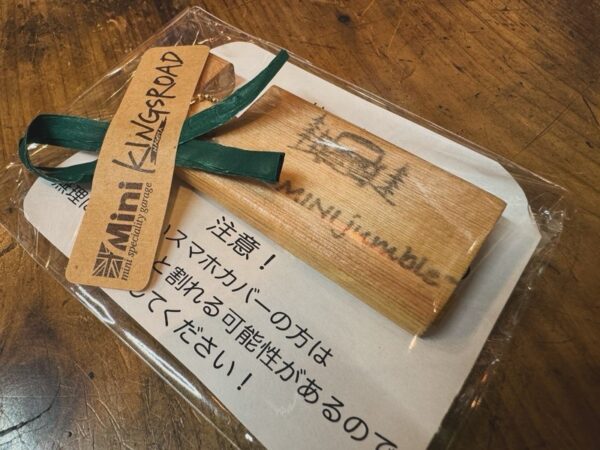 Mini KINGSROAD
mini speciality garage
MINI jumble
注意！
スマホカバーの方は
と割れる可能性があるので
してください！
無理